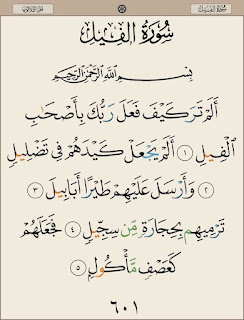 سُورَةُ الفِيلِ
بِسْمِ اللَّهِ الرَّحْمَٰنِ الرَّحِيمِ
أَلَمْ تَرَ كَيْفَ فَعَلَ رَبُّكَ بِأَصْحَٰبِ
الْفِيلِ ١ أَلَمْ يَجْعَلْ كَيْدَهُمْ فِي تَضْلِيلٍ
٢ وَأَرْسَلَ عَلَيْهِمْ طَيْرًا أَبَابِيلَ ٣
تَرْمِيهِم بِحِجَارَةٍ مِّن سِجِّيلٍ ٤ فَجَعَلَهُمْ
كَعَصْفٍ مَّأْكُولٍ ٥
٦٠١